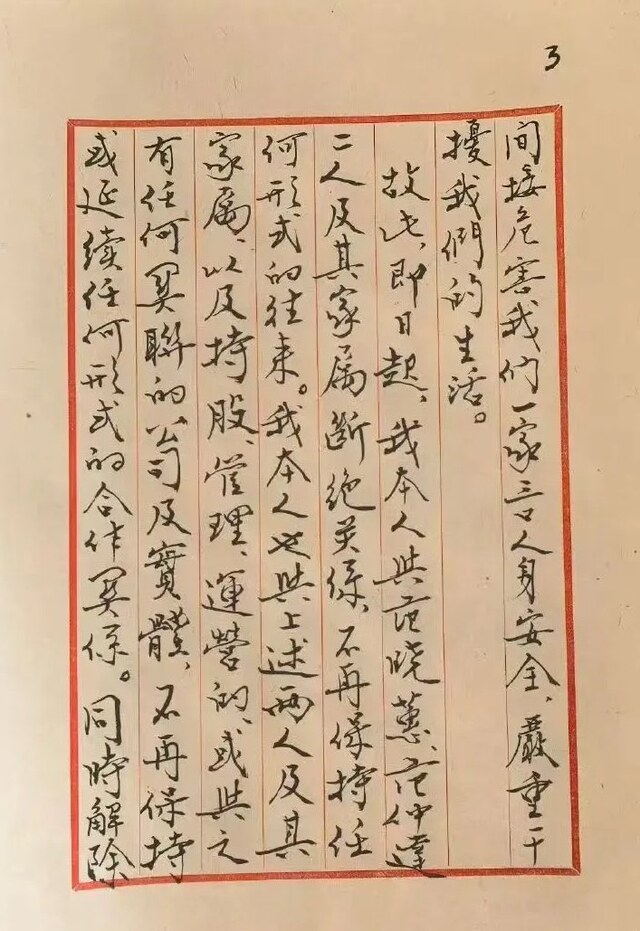 3
间接危害我们一家三口人身安全、嚴重干
擾我們的生活。
故此、即日起、我本人與范晓蕙、范仲達
二人及其家屬斷绝关係、不再保持任
何形式的往来。我本人也與上述两人及其
家屬、以及持股、管理、運營的、或與之
有任何関聯的公司及實體、不再保持
或延续任何形式的合作関係。同時解除